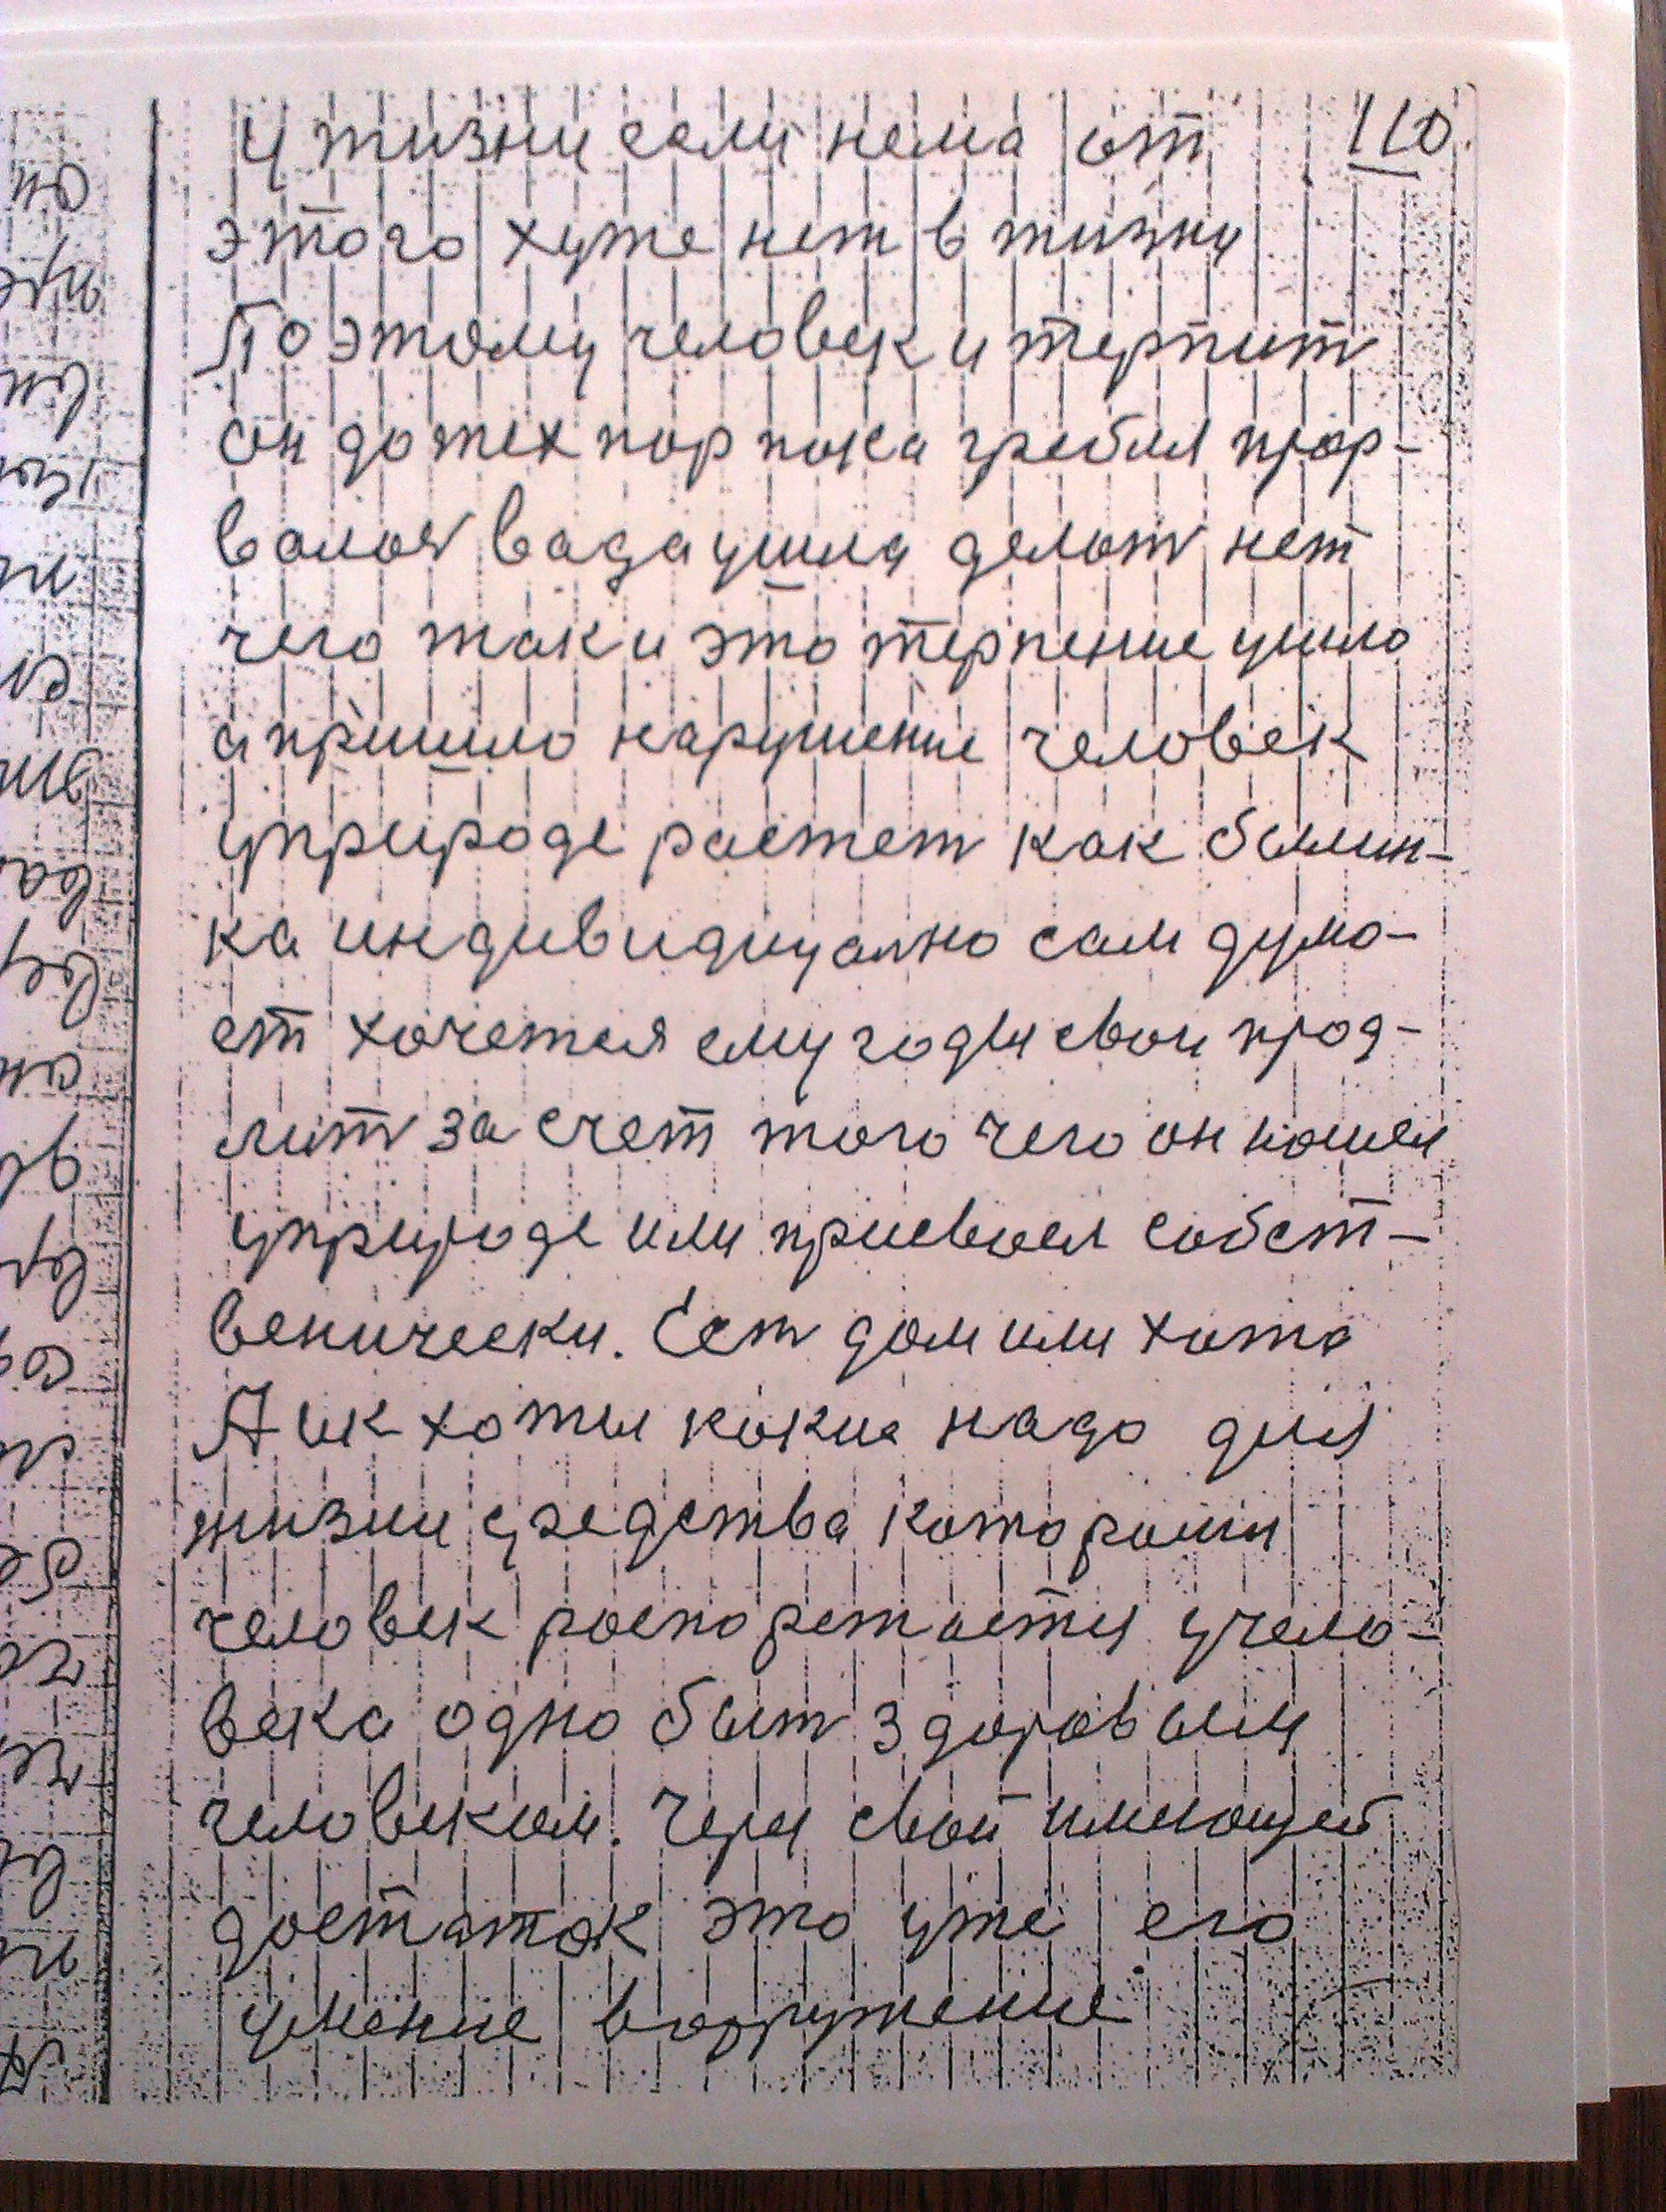 110.
у жизни если нема от
этого хуже нет в жизни
Поэтому человек и терпит
он до тех пор пока гребля прор-
валося вада ушла делат нет
чего так и это терпение ушло
а пришло нарушение человек
уприроде растет как былин-
ка индивидиуално сам дума-
ет хочется ему годы свои прод-
лит за счет того чего он нашел
уприроде или присвоел собст-
венически. Ест дом или хата
А ик хоты какие надо для
жизни средства которыми
человек распорежается учело-
века одно быт здоровым
человеком. Через свой имеющей
достаток это уже его
умение вооружение